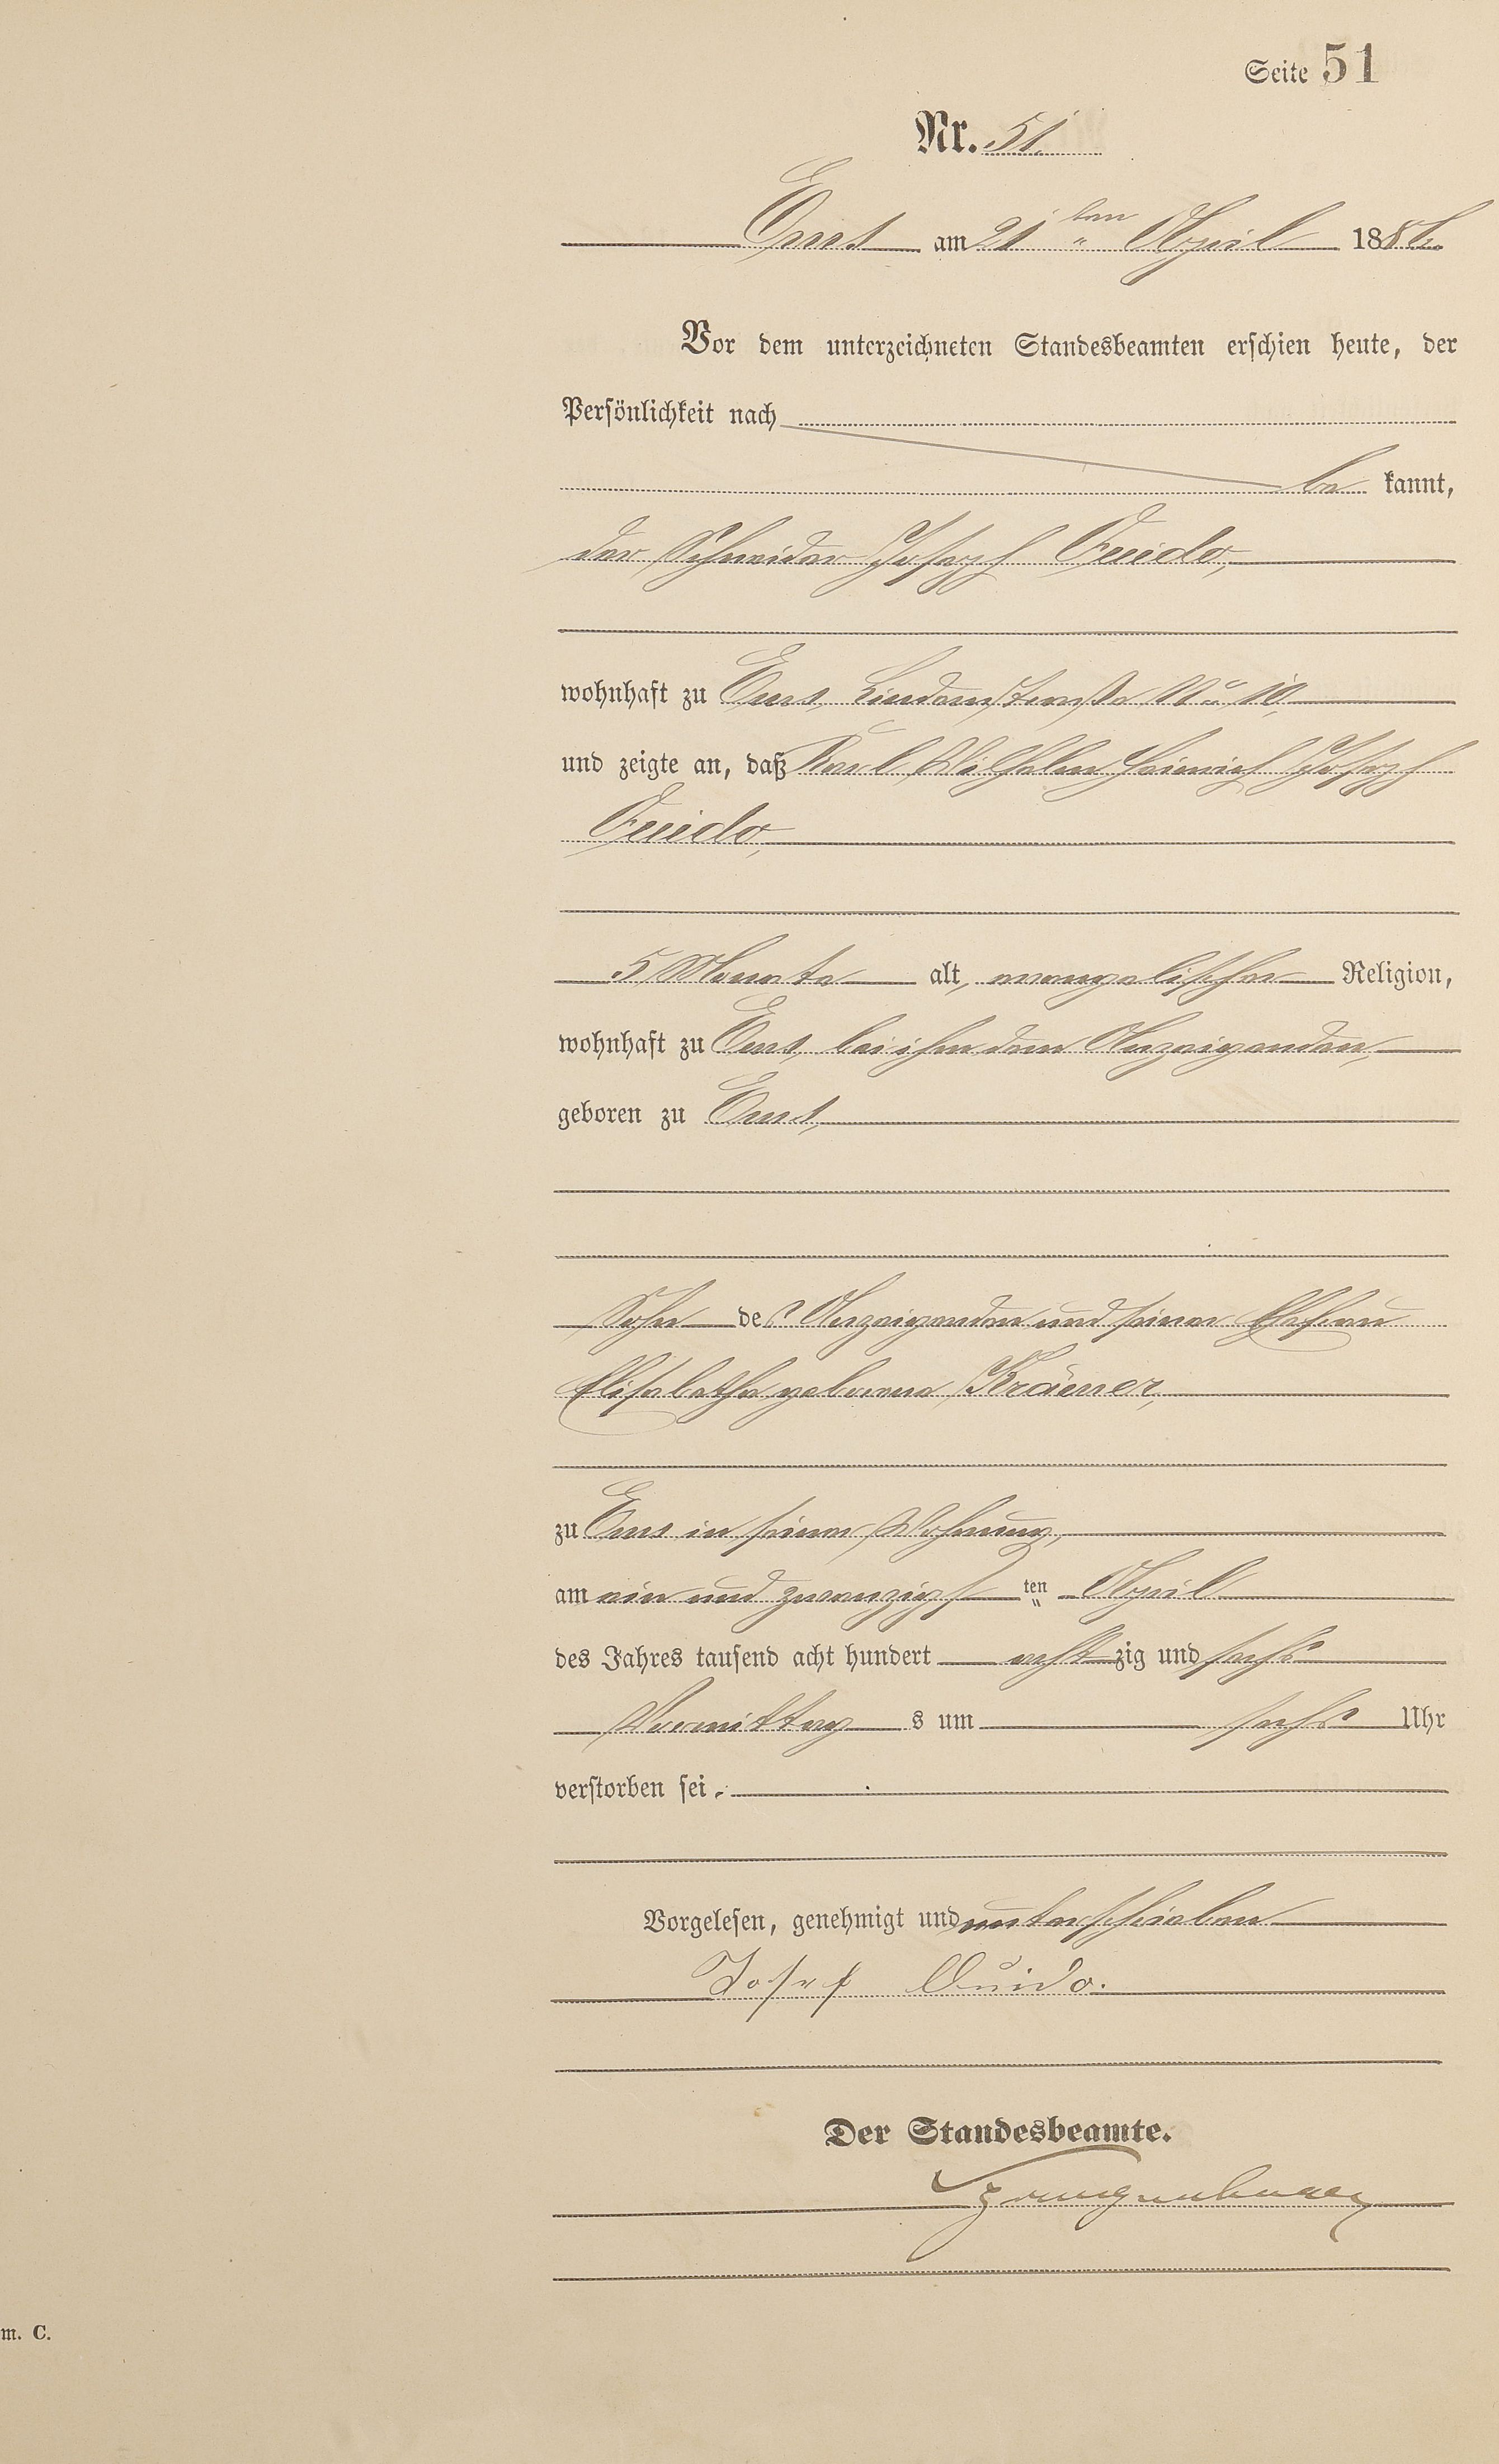 Seite 51
Nr. 51.
Ems am 21ten April 1886.
Vor dem unterzeichneten Standesbeamten erschien heute, der
Persönlichkeit nach
be kannt,
der Schneider Joseph Guido,
wohnhaft zu Ems, Lindenstraße No 10,
und zeigte an, daß Karl Wilhelm Heinrich Joseph
Guido,
5 Monate alt, evangelischer Religion,
wohnhaft zu Ems, bei ihm dem Anzeigenden,
geboren zu Ems,
Sohn des Anzeigenden und seiner Ehefrau
Elisabetha geborene Krämer,
zu Ems in seiner Wohnung,
am ein und zwanzigsten April
des Jahres tausend acht hundert achtzig und sechs
Vormittags um sechs Uhr
verstorben sei.
Vorgelesen, genehmigt und unterschrieben
Josef Guido.
Der Standesbeamte.
m. C.